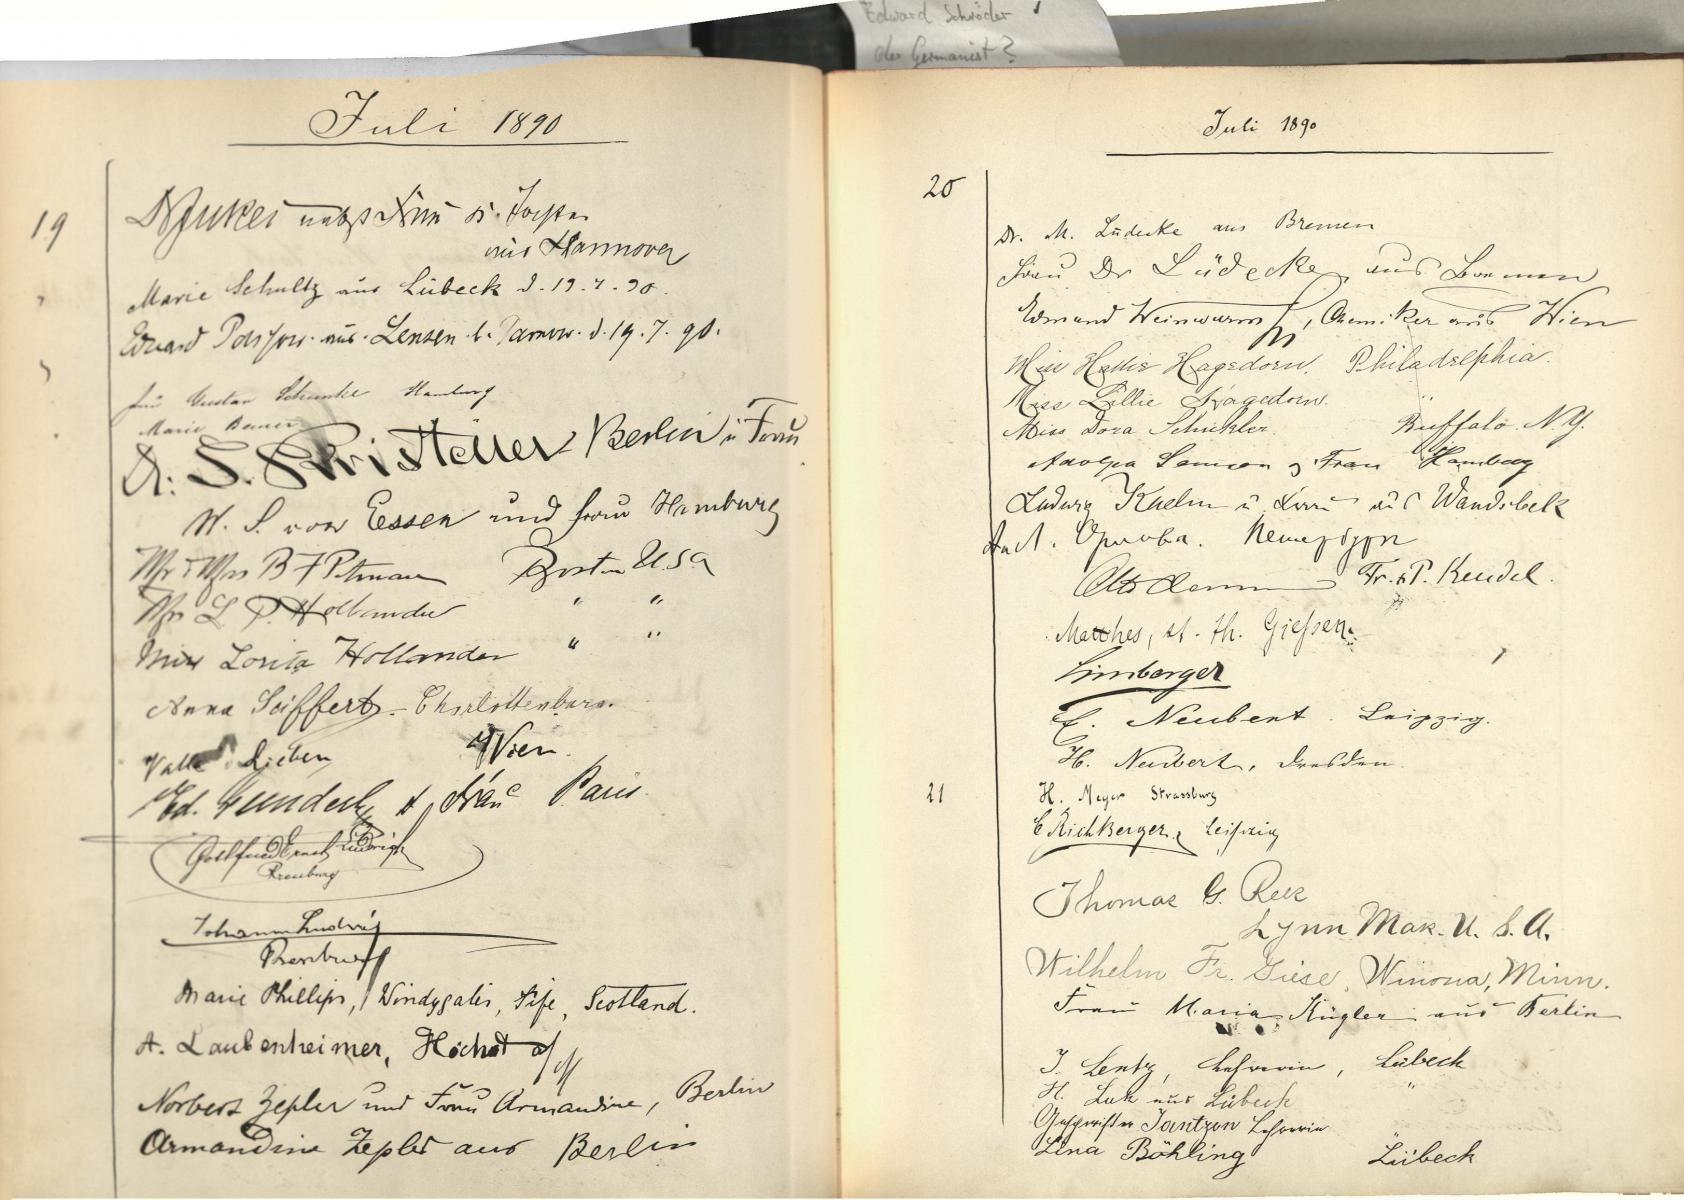 Edward Schröder
der Germanist?
Juli 1890
19
aus Hannover
Marie Schultz aus Lübeck d. 19.7.90.
Eduard aus Lensen b. d. 19.7.90.
Gustav Hamburg
Marie
Dr. S. Kristeller Berlin u Frau
W. S. von Essen und Frau Hamburg
Mr & Mrs B F Pitman Boston U.S.A
Mrs L P. Hollander " "
Miss Louisa Hollander " "
Anna Seiffert - Charlottenburg.
Lieben Wien.
Ed. Paris.
Gottfried Ernst Ludwig
Johann Ludwig
Marie Phillips, Windygates, Fife, Scotland.
A. Laubenheimer, Höchst a/M
Norbert Zepler und Frau Armandine, Berlin
Armandine Zepler aus Berlin
Juli 1890
20
Dr. M. Lüdecke aus Bremen
Frau Dr Lüdecke aus Bremen
Edmund Weinwurm, Chemiker aus Wien
Miss Hattie Hagedorn. Philadelphia.
Miss Lillie Hagedorn. "
Miss Dora Schickler. Buffalo N.Y.
Adolph Samson u Frau Hamburg
Ludwig Kuehn u. Frau aus Wandsbek
Орлова. Петербург
Fr. P. Kendel.
Matthes, st. th. Giessen.
Limberger
E. Neubert. Leipzig.
H. Neubert, Dresden.
21
H. Meyer Strassburg
E Richberger, Leipzig
Thomas G. Reek
Lynn Mass. U. S. A.
Wilhelm Fr. Giese, Winona, Minn.
Frau Maria Kügler aus Berlin
J. Lentz, Lehrerin, Lübeck
H. aus Lübeck "
Geschwister Jantzen Lehrerin
Lina Böhling Lübeck